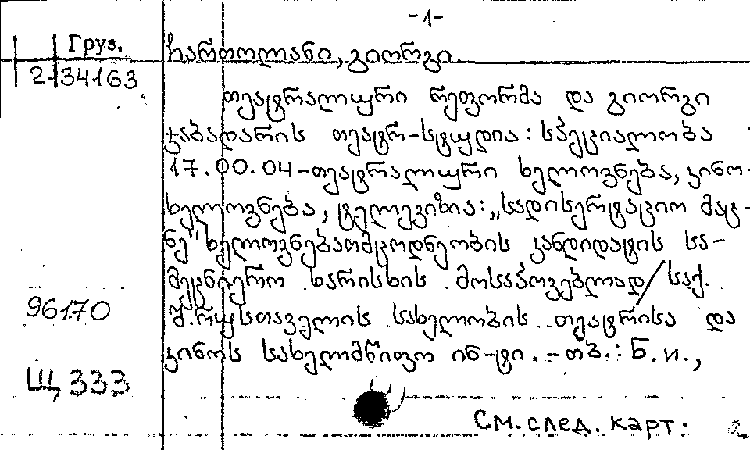 -1-
Груз.
2-34163
ჩართოლანი, გიორგი.
თეატრალური რეფორმა და გიორგი
ჯაბადარის თეატრ-სტუდია: სპეციალობა
17.00.04-თეატრალური ხელოვნება, კინო-
ხელოვნება, ტელევიზია: „სადისერტაციო მაც-
ნე" ხელოვნებათმცოდნეობის კანდიდატის სა-
მეცნიერო ხარისხის მოსაპოვებლად / საქ.
96170
შ. რუსთაველის სახელობის თეატრისა და
კინოს სახელმწიფო ინ-ტი. -თბ.: Б.и.,
Щ 333
См. след. карт.